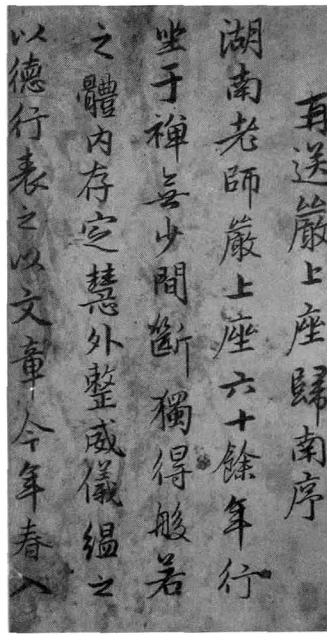 再送嚴上座歸南序
湖南老師嚴上座六十餘年行
坐于禪無少間斷獨得般若
之體内存定慧外整威儀緼之
以德行表之以文章今年春入